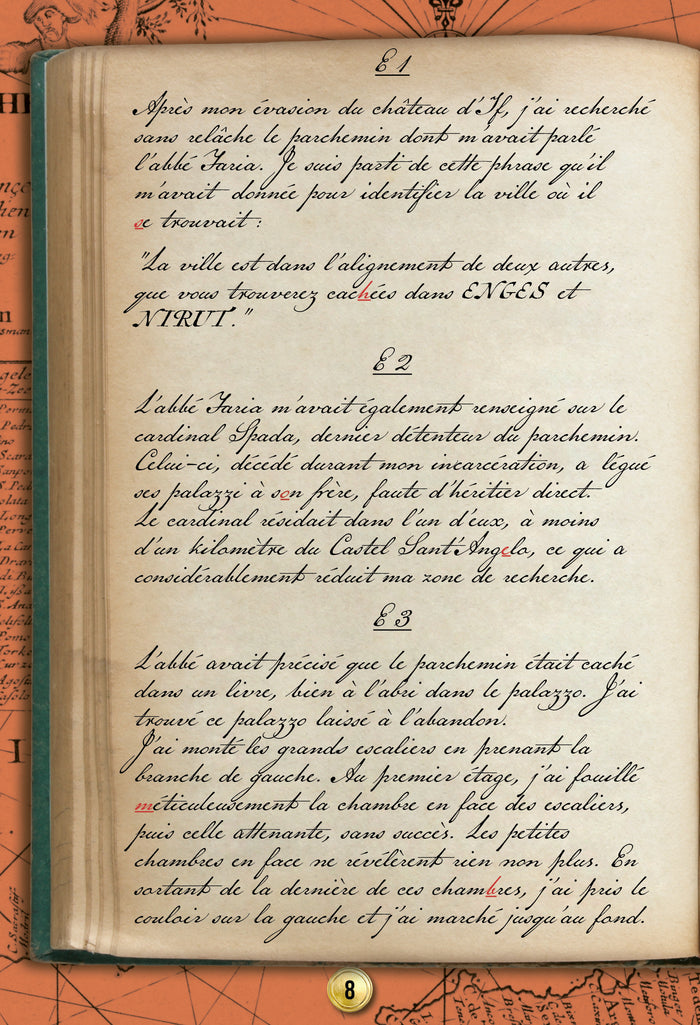 E 1
Après mon évasion du château d'If, j'ai recherché
sans relâche le parchemin dont m'avait parlé
l'abbé Faria. Je suis parti de cette phrase qu'il
m'avait donnée pour identifier la ville où il
se trouvait :
"La ville est dans l'alignement de deux autres,
que vous trouverez cachées dans ENGES et
NIRUT."
E 2
L'abbé Faria m'avait également renseigné sur le
cardinal Spada, dernier détenteur du parchemin.
Celui-ci, décédé durant mon incarcération, a légué
ses palazzi à son frère, faute d'héritier direct.
Le cardinal résidait dans l'un d'eux, à moins
d'un kilomètre du Castel Sant'Angelo, ce qui a
considérablement réduit ma zone de recherche.
E 3
L'abbé avait précisé que le parchemin était caché
dans un livre, bien à l'abri dans le palazzo. J'ai
trouvé ce palazzo laissé à l'abandon.
J'ai monté les grands escaliers en prenant la
branche de gauche. Au premier étage, j'ai fouillé
méticuleusement la chambre en face des escaliers,
puis celle attenante, sans succès. Les petites
chambres en face ne révélèrent rien non plus. En
sortant de la dernière de ces chambres, j'ai pris le
couloir sur la gauche et j'ai marché jusqu'au fond.
8